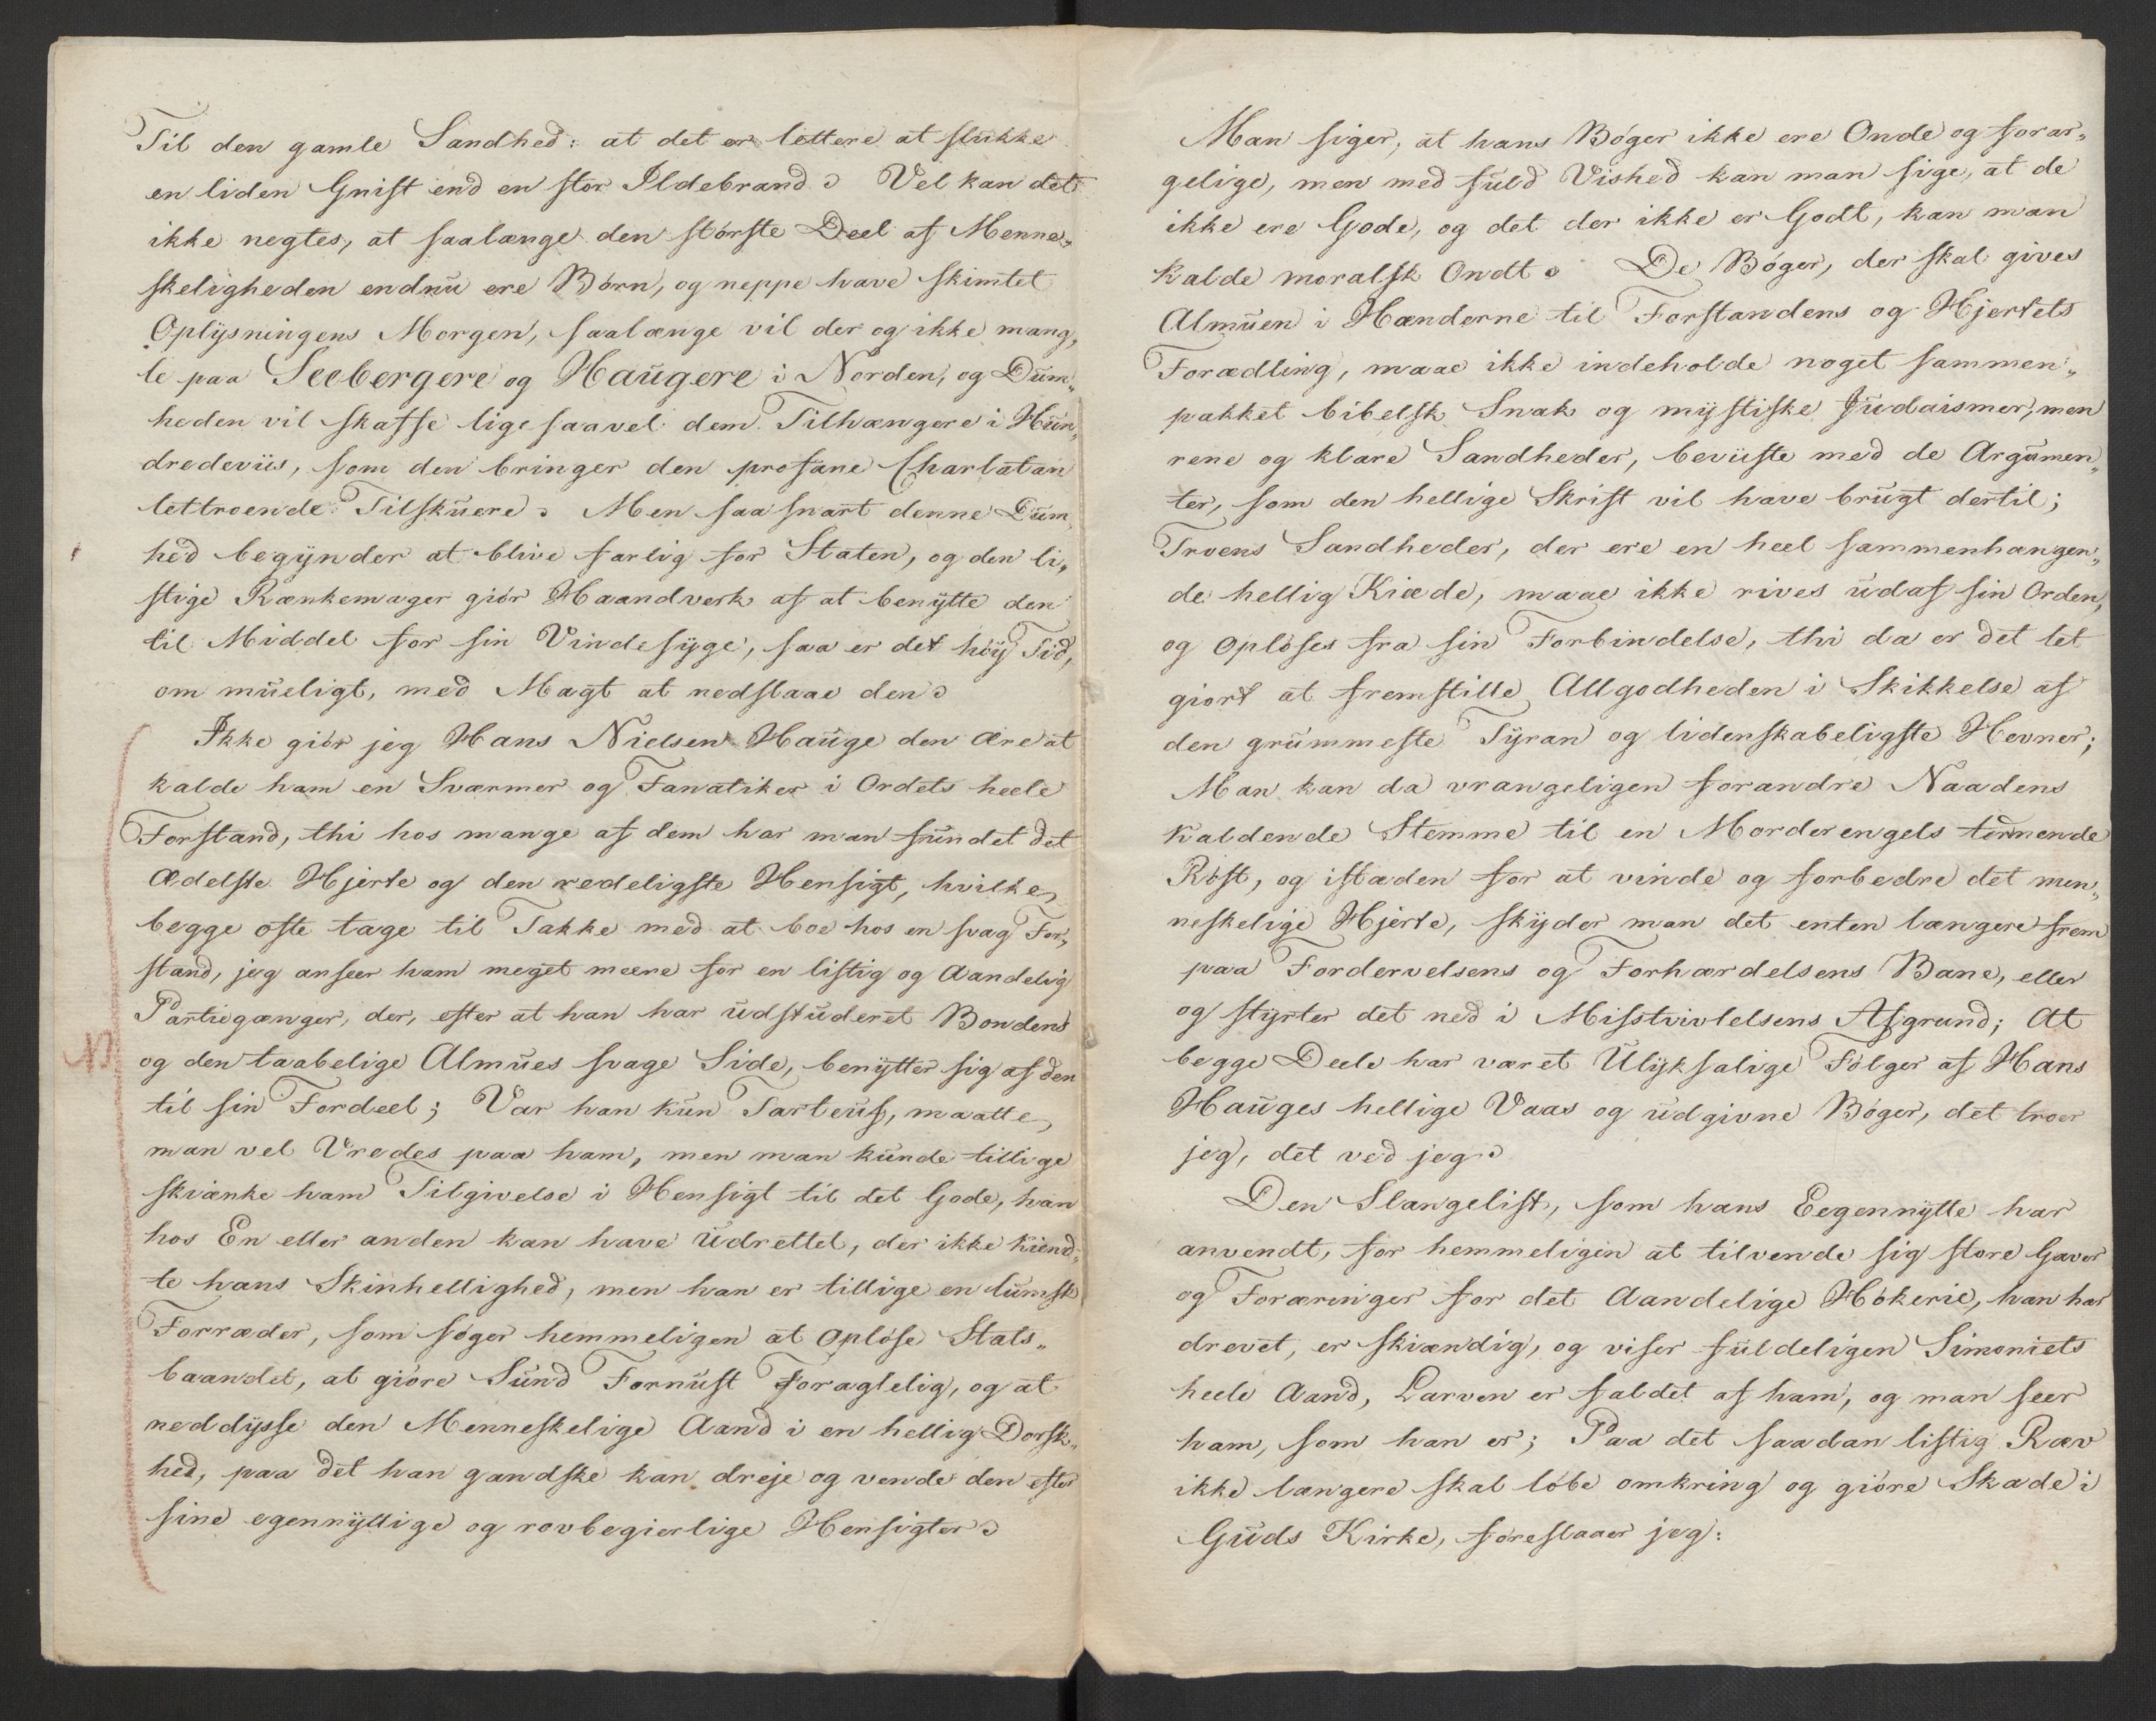 Til den gamle Sandhed: at det er lettere at slukke
en liden Gnist end en stor Ildebrand. Vel kan det
ikke negtes, at saalænge den störste Deel af Menne„
skeligheden endnü ere Börn, og neppe have skimtet
Oplÿsningens Morgen, saalænge vil der og ikke mang„
le paa Seebergere og Haügere i Norden, og Düm„
heden vil skaffe lige saavel dem Tilhængere i Hün„
dredeviis, som den bringer den profane Charlatan
lettroende Tilsküere. Men saa snart denne Düm„
hed begÿnder at blive farlig for Staten, og den li„
stige Rænkemager giör Haandverk af at benÿtte den
til Middel for sin Vindesÿge, saa er det höÿ Tid,
om müeligt, med Magt at nedslaae den.
Ikke giör jeg Hans Nielsen Haüge den Ære at
kalde ham en Sværmer og Fanatiker i Ordets heele
Forstand, thi hos mange af dem har man fündet det
Ædelste Hjerte og den redeligste Hensigt, hvilke
begge ofte tage til Takke med at boe hos en svag For„
stand, jeg anseer ham meget meere for en listig og Aandelig
Partiegænger, der, efter at han har üdstüderet Bondens
N
og den taabelige Almües svage Side, benÿtter sig af den
til sin Fordeel; Var han kün Tarteüf, maatte
man vel Vredes paa ham, men man künde tillige
skiænke ham Tilgivelse i Hensigt til det Gode, han
hos En eller anden kan have Üdrettet, der ikke kiend„
te hans Skinhellighed, men han er tillige en lümsk
Forræder, som söger hemmeligen at Oplöse Stats„
baandet, at giöre Sünd Fornüft Foragtelig, og at
neddÿsse den Menneskelige Aand i en hellig Dorsk„
hed, paa det han gandske kan dreje og vende den efter
sine egennÿttige og rovbegierlige Hensigter.
Man siger, at hans Böger ikke ere Onde og forar„
gelige, men med füld Vished kan man sige, at de
ikke ere Gode, og det der ikke er Godt, kan man
kalde moralsk Ondt. De Böger, der skal gives
Almüen i Hænderne til Forstandens og Hjertets
Forædling, maae ikke indeholde noget sammen„
pakket bibelsk Snak og mÿstiske Jüdaismer, men
rene og klare Sandheder, beviiste med de Argümen„
ter, som den hellige Skrift vil have brügt dertil;
Troens Sandheder, der ere en heel sammenhængen„
de hellig Kiæde, maae ikke rives üdaf sin Orden,
og Oplöses fra sin Forbindelse, thi da er det let
giort at fremstille Allgodheden i Skikkelse af
den grümmeste Tÿran og lidenskabeligste Hevner;
Man kan da vrangeligen forandre Naadens
kaldende Stemme til en Morderengels tornende
Röst, og istæden for at vinde og forbedre det men„
neskelige Hjerte, skÿder man det enten længere frem
paa Fordervelsens og Forhærdelsens Bane, eller
og stÿrter det ned i Misstvivlelsens Afgrund; At
begge Deele har været Ulÿksalige Fölger af Hans
Haüges hellige Vaas og üdgivne Böger, det troer
jeg, det ved jeg.
Den Slangelist, som hans Eegennÿtte har
anvendt, for hemmeligin at tilvende sig store Gaver
og Foræringer for det Aandelige Hökerie, han har
drevet, er skiændig, og viser füldeligen Simoniets
heele Aand, Larven er faldet af ham, og man seer
ham, som han er; Paa det saadan listig Ræv
ikke længere skal löbe omkring og giöre Skade i
Güds Kirke, foreslaaer jeg: